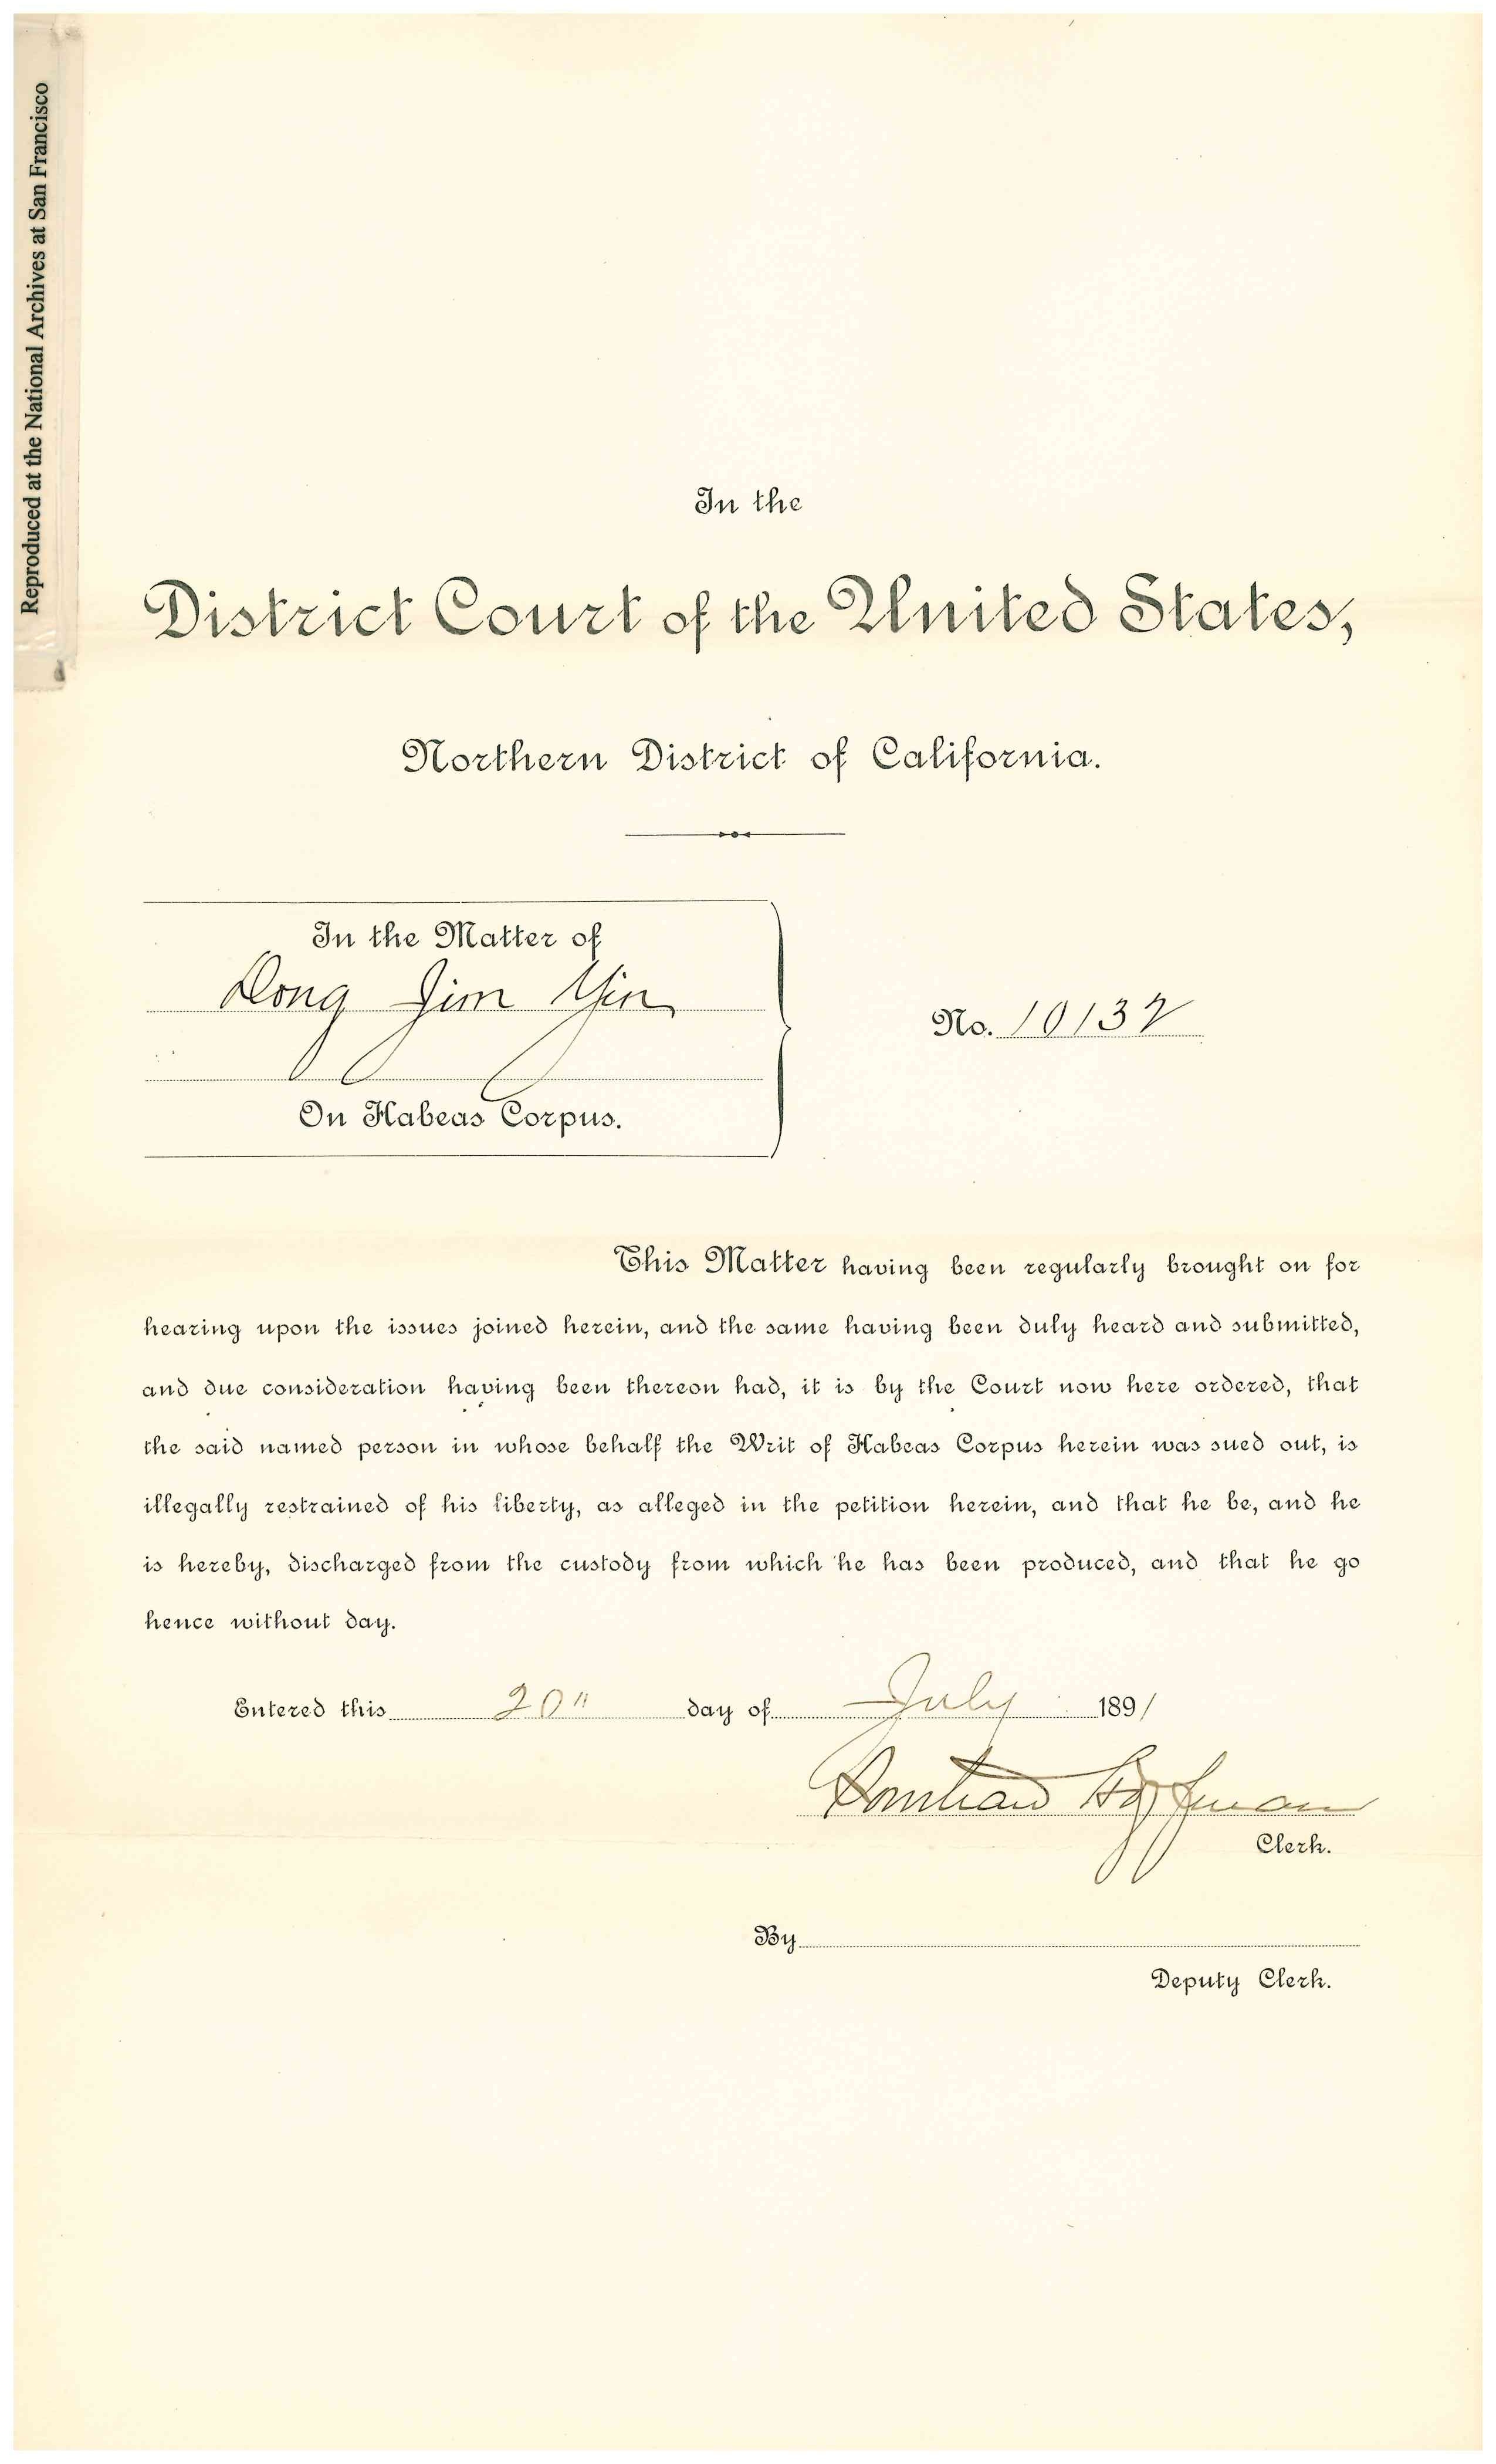 Reproduced at the National Archives at San Francisco
In the
District Court of the United States,
Northern District of California.
In the Matter of
Dong Jim Yin
No. 10132
On Habeas Corpus.
This Matter having been regularly brought on for
hearing upon the issues joined herein, and the same having been duly heard and submitted,
and due consideration having been thereon had, it is by the Court now here ordered, that
the said named person in whose behalf the Writ of Habeas Corpus herein was sued out, is
illegally restrained of his liberty, as alleged in the petition herein, and that he be, and he
is hereby, discharged from the custody from which he has been produced, and that he go
hence without day.
Entered this 20" day of July 1891
Southard Hoffman
Clerk.
By
Deputy Clerk.